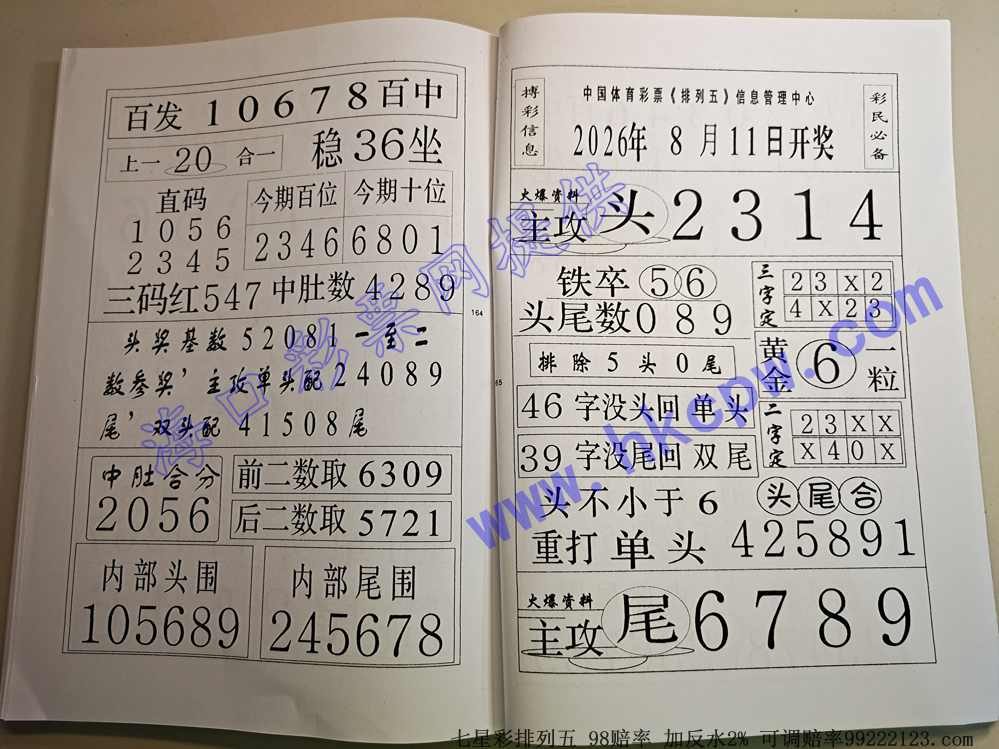 百发 10678 百中
上一 20 合一 稳 36 坐
直码
1056
2345
今期百位 今期十位
2346 6801
三码红 547 中肚数 4289
头奖基数 52081 一至二
数参奖’主攻单头配 24089
尾’双头配 41508 尾
中肚合分
2056
前二数取 6309
后二数取 5721
内部头围
105689
内部尾围
245678
164
165
搏彩信息
中国体育彩票《排列五》信息管理中心
2026年 8 月 11日开奖
彩民必备
火爆资料
主攻 头 2 3 1 4
铁卒 5 6
头尾数 0 8 9
排除 5 头 0 尾
三字定
2 3 X 2
4 X 2 3
黄金 6 一粒
46 字没头回 单 头
39 字没尾回 双 尾
二字定
2 3 X X
X 4 0 X
头 不 小 于 6 头 尾 合
重打 单 头 425891
火爆资料
主攻 尾 6 7 8 9
海口彩票网提供
www.hkcpw.com
七星彩排列五 98赔率 加反水2% 可调赔率99222123.com